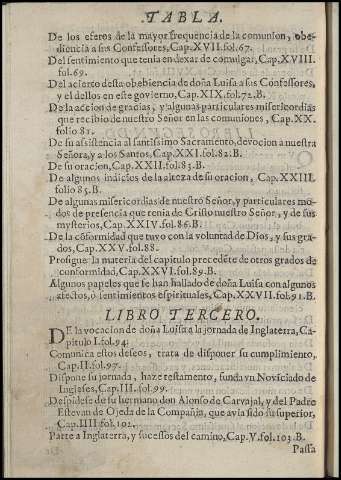 TABLA.
De los efetos de la mayor frequencia de la comunion, obe-
diencia a sus Confessores, Cap. XVII. fol. 67.
Del sentimiento que tenia en dexar de comulgar, Cap. XVIII.
fol. 69.
Del acierto desta obediencia de doña Luisa a sus Confessores,
y el dellos en este govierno, Cap. XIX. fol. 72. B.
De la accion de gracias, y algunas particulares misericordias
que recibio de nuestro Señor en las comuniones, Cap. XX.
folio 81.
De su assistencia al santissimo Sacramento, devocion a nuestra
Señora, y a los Santos, Cap. XXI. fol. 82. B.
De su oracion, Cap. XXII. fol. 83. B.
De algunos indicios de la alteza de su oracion, Cap. XXIII.
folio 85. B.
De algunas misericordias de nuestro Señor, y particulares mo-
dos de presencia que tenia de Cristo nuestro Señor, y de sus
mysterios, Cap. XXIV. fol. 86. B.
De la cõformidad que tuvo con la voluntad de Dios, y sus gra-
dos, Cap. XXV. fol. 88.
Prosigue la materia del capitulo precedẽte de otros grados de
conformidad, Cap. XXVI. fol. 89. B.
Algunos papeles que se han hallado de doña Luisa con algunos
afectos, ò sentimientos espirituales, Cap. XXVII. fol. 91. B.
LIBRO TERCERO.
DE la vocacion de doña Luisa a la jornada de Inglaterra, Ca-
pitulo I. fol. 94.
Comunica estos deseos, trata de disponer su cumplimiento,
Cap. II. fol. 97.
Dispone su jornada, haze testamento, funda vn Noviciado de
Ingleses, Cap. III. fol. 99.
Despidese de su hermano don Alonso de Carvajal, y del Padre
Estevan de Ojeda de la Compañia, que avia sido su superior,
Cap. IIII. fol. 102.
Parte a Inglaterra, y sucessos del camino, Cap. V. fol. 103. B.
Passa